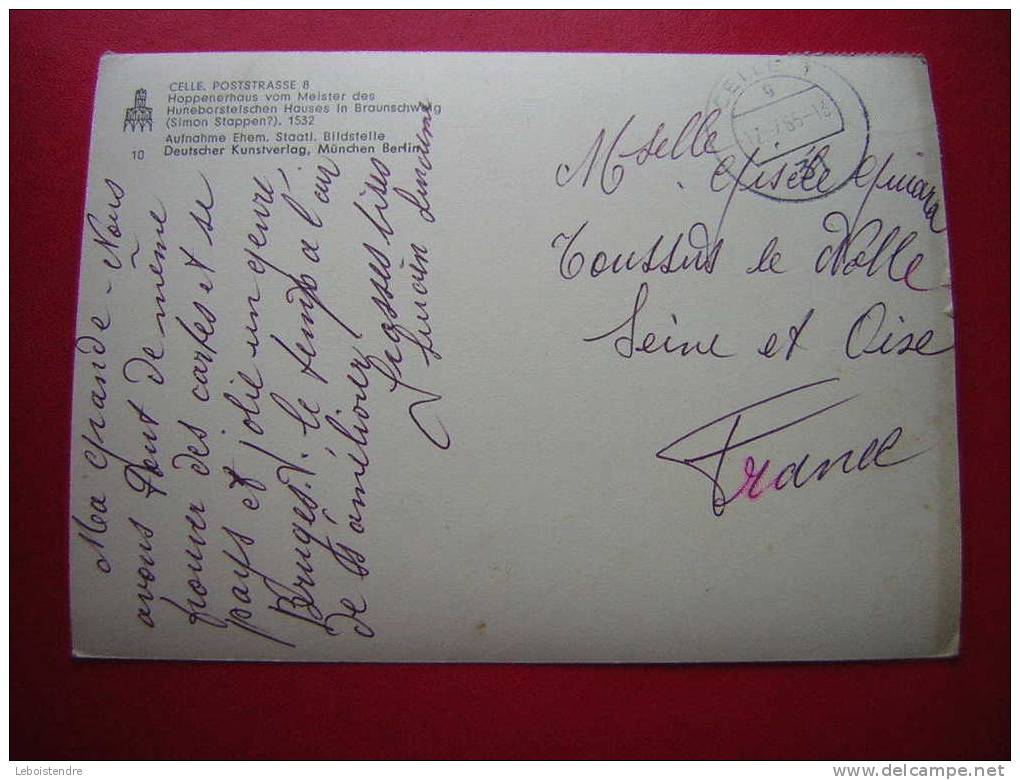 CELLE. POSTSTRASSE 8
Hoppenerhaus vom Meister des
Huneborstelschen Hauses in Braunschweig
(Simon Stappen?). 1532
Aufnahme Ehem. Staatl. Bildstelle
10 Deutscher Kunstverlag, München Berlin
Ma grande - Nous
avons tout de même
trouver des cartes et se
pays et jolie un genre
Bruges. le temps a l'air
de s'améliorer
Grosses bises
CELLE
g
Mselle Gisèle
Toussus le Noble
Seine et Oise
France
Leboistendre
http://www.delcampe.net